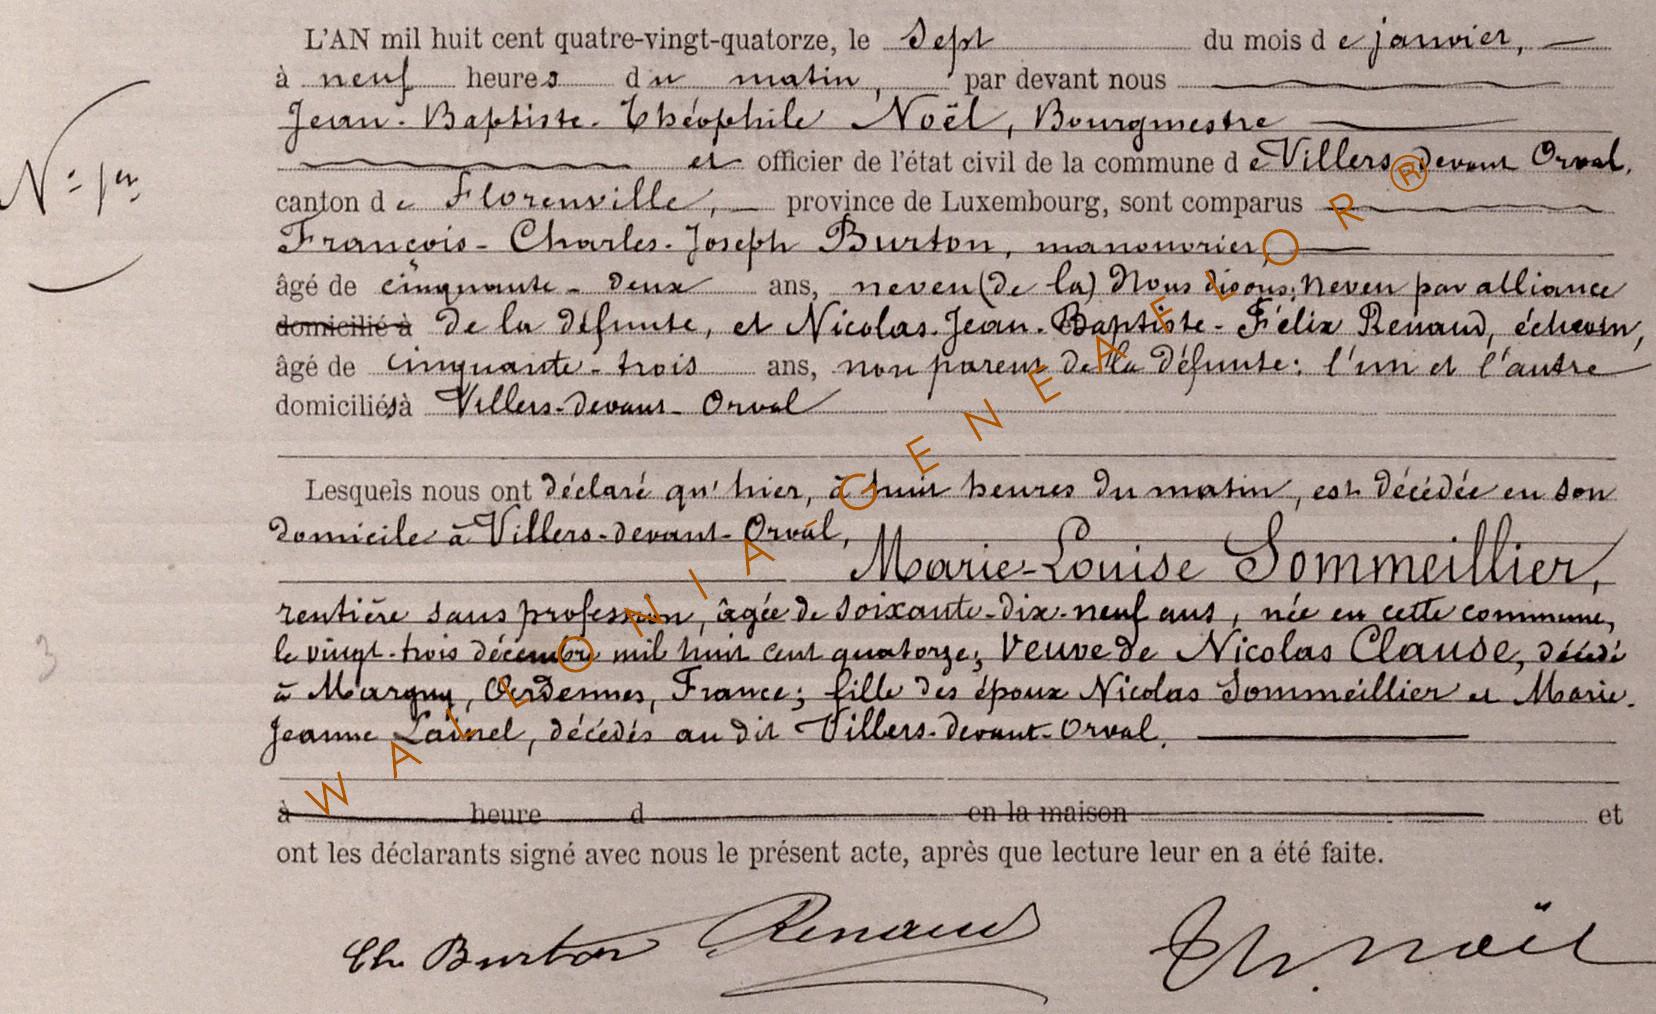 L'AN mil huit cent quatre-vingt-quatorze, le Sept du mois de janvier,
à neuf heures du matin, par devant nous
Jean-Baptiste-Théophile Noël, Bourgmestre
et officier de l'état civil de la commune de Villers-devant Orval,
N° 1er
canton de Florenville, province de Luxembourg, sont comparus
François-Charles-Joseph Burton, manouvrier,
âgé de cinquante-deux ans, neveu (de la) Nous disons: neveu par alliance
domicilié à de la défunte, et Nicolas-Jean-Baptiste-Félix Renaud, échevin,
âgé de cinquante-trois ans, non parent de la défunte: l'un et l'autre
domiciliés à Villers-devant-Orval
Lesquels nous ont déclaré qu'hier, à huit heures du matin, est décédée en son
domicile à Villers-devant-Orval,
Marie-Louise Sommeillier,
rentière sans profession, âgée de soixante-dix-neuf ans, née en cette commune,
le vingt-trois décembre mil huit cent quatorze; Veuve de Nicolas Clause, décédé
à Margny, Ardennes, France; fille des époux Nicolas Sommeillier et Marie-
3
Jeanne Lainel, décédés au dit Villers-devant-Orval.
à heure d en la maison et
ont les déclarants signé avec nous le présent acte, après que lecture leur en a été faite.
Ch Burton Renaud Th. Noël
WALLONIA-GENEAFLOR®